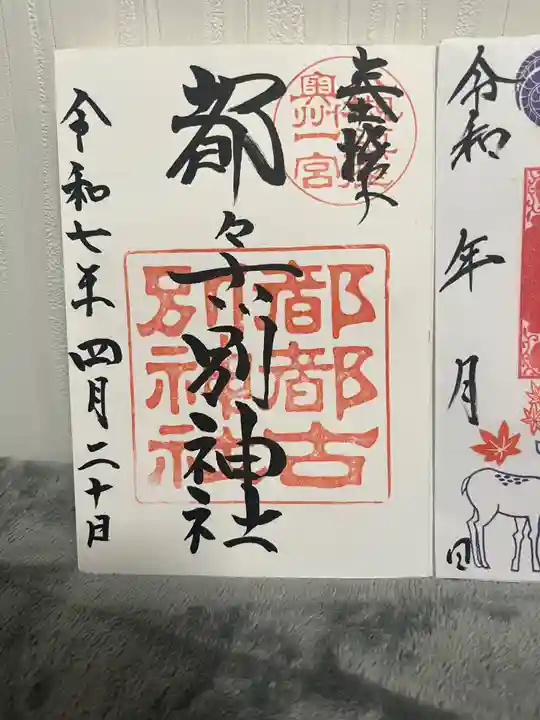 令和 年 月 日
奉拝
奥州一宮
都々古別神社
都都古
別神社
令和七年四月二十日